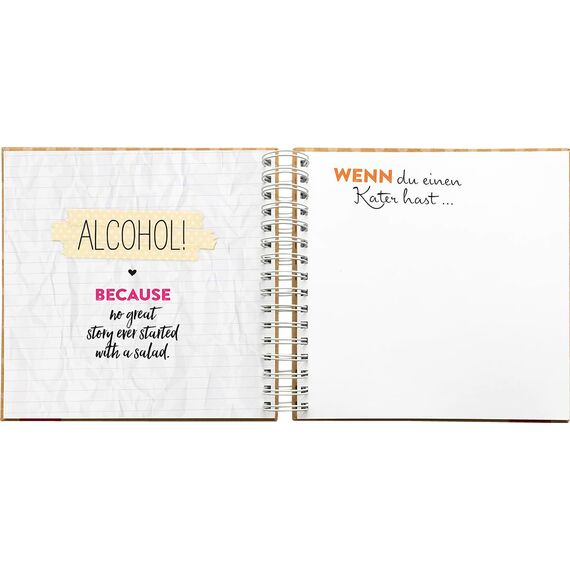 ALCOHOL!
BECAUSE
no great
story ever started
with a salad.
WENN du einen
Kater hast ...